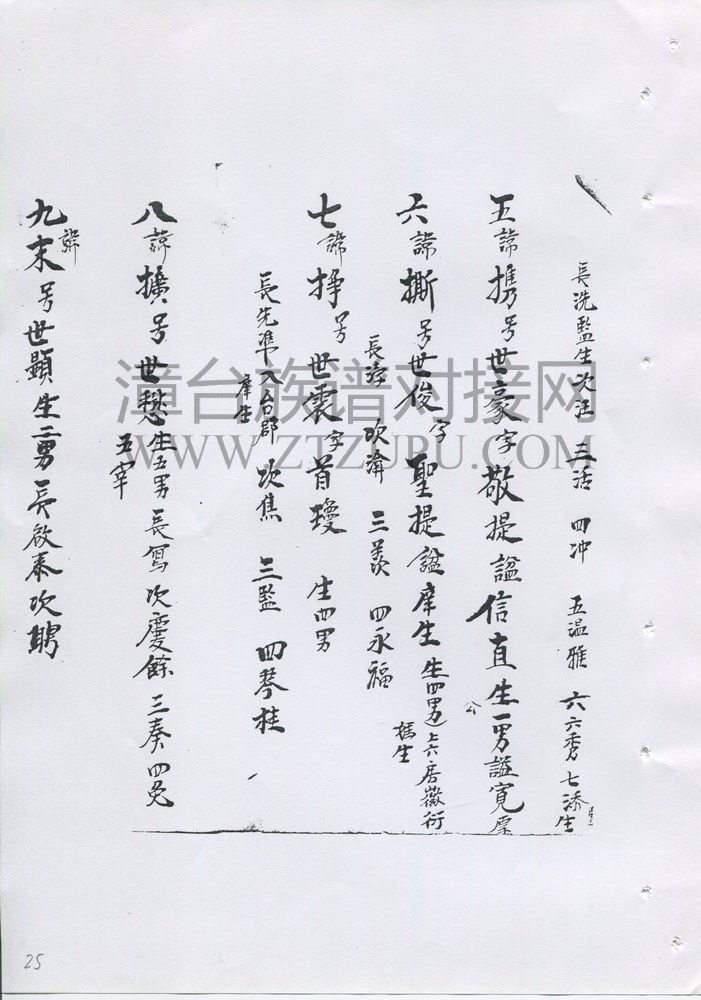 長洗監生次注 三活 四冲 五温雅 六六秀 七添生
五諱携号世豪字敬提謚信直生一男謚寬厚
公
六諱撕号世俊字聖提謚庠生生四男 上六房徽衍
媽生
長 次淪 三羨 四永福
七諱掙号世震字首瓊 生四男
長先準入台郡 次焦 三監 四琴桂
庠生
八諱擴号世愁生五男長寫次慶餘三奏四免
五宰
九諱末号世顯生二男長啟泰次聘
漳台族谱对接网
WWW.ZTZUPU.COM
25